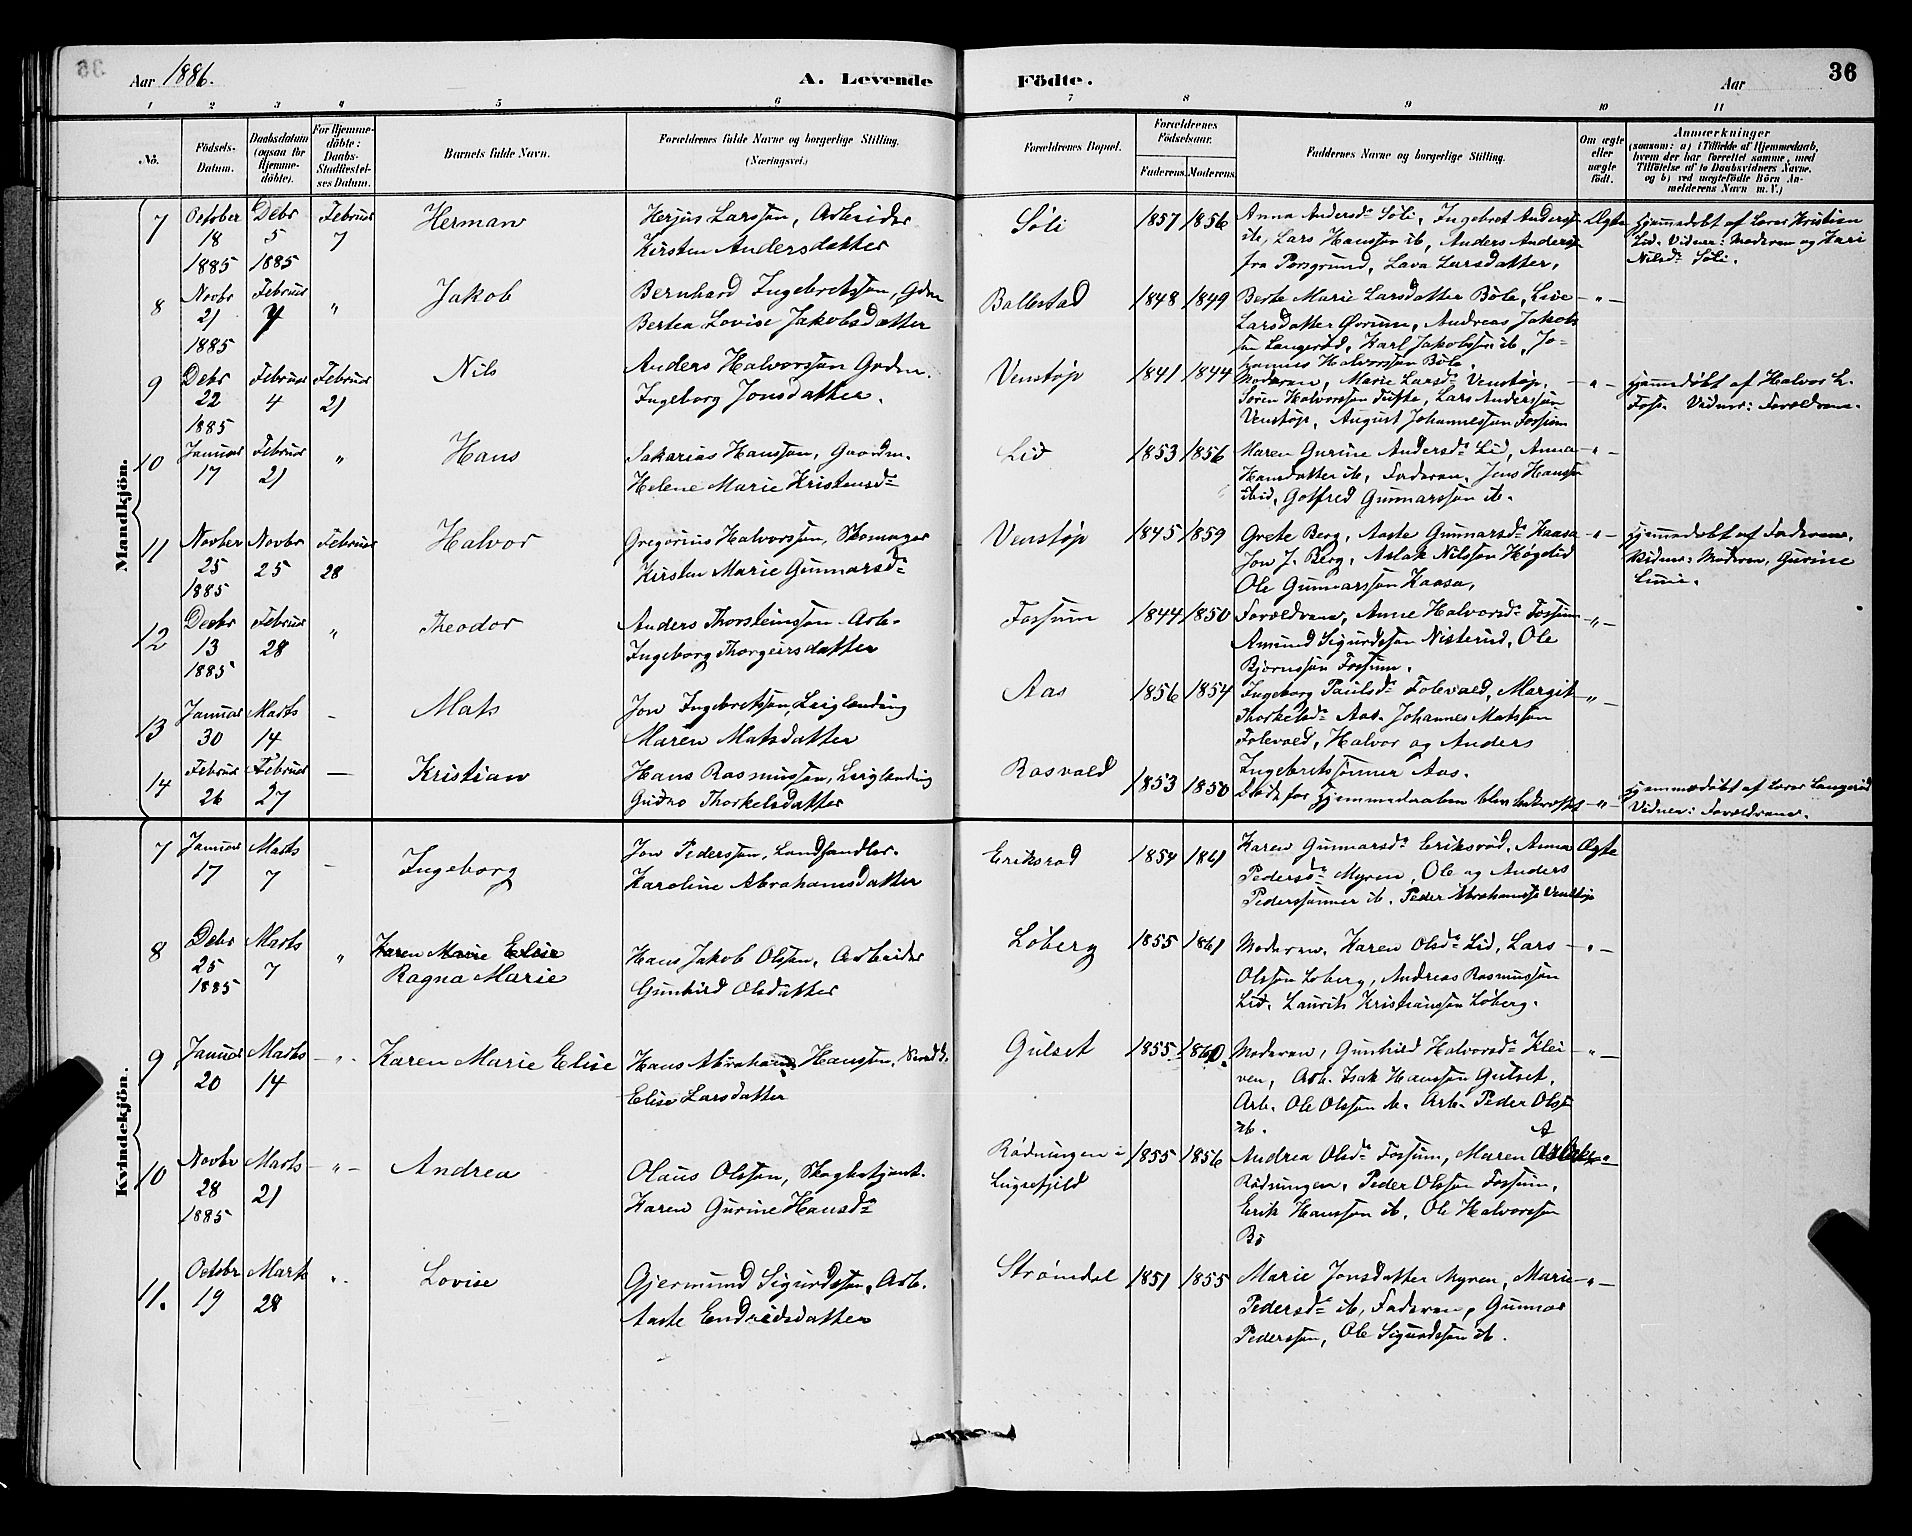 36
Aar 1886.
A. Levende
Födte.
Aar
36
1 2 3 4 5 6 7 8 9 10 11
No.
Födsels-Datum.
Daabsdatum (ogsaa for Hjemme-döbte).
For Hjemme-döbte: Daabs-Stadfæstel-ses Datum.
Barnets fulde Navn.
Forældrenes fulde Navne og borgerlige Stilling.
(Næringsvei.)
Forældrenes Bopæl.
Forældrenes Födselsaar.
Faderens. Moderens.
Faddernes Navne og borgerlige Stilling.
Om ægte eller uægte födt.
Anmærkninger
(saasom: a) i Tilfælde af Hjemmedaab, hvem der har forrettet samme, med Tilföielse af to Daabsvidners Navne, og b) ved uægtefödte Börn An-melderens Navn m. V.)
Mandkjön.
7 October 18 1885 Debr 5 1885 Februar 7 Herman
Herjus Larssøn, Arbeider
Kirsten Andersdatter
Søli 1857 1856
Anna Andersdr Søli, Ingebret Anderss
ib, Lars Hanssøn ib, Anders Anderss
fra Porsgrund, Lava Larsdatter,
Ægte
Hjemmedøbt af Lærer Kristian
Lid. Vidner: Moderen og Kari
Nilsdr Søli.
8 Novbr 21 1885 Februar 7 " Jakob
Bernhard Ingebretssøn, Gdm
Bertea Lovise Jakobsdatter
Ballestad 1848 1849
Berte Marie Larsdatter Böle, Live
Larsdatter Øvrum, Andreas Jakobs
søn Langerød, Karl Jakobssøn ib, Jo-
hannes Halvorssøn Böle.
- " -
9 Debr 22 1885 Februar 4 Februar 21 Nils
Anders Halvorssøn Grdm.
Ingeborg Jonsdatter.
Venstøp 1841 1844
Moderen, Marie Larsdr Venstøp,
Søren Halvorssøn Tufte, Lars Anderssøn
Venstøp, August Johannessøn Fossum
- " -
Hjemmedøbt af Halvor L.
Foss. Vidner: Forældrene.
10 Januar 17 Februar 21 " Hans
Sakarias Hanssøn, Gaardm.
Helene Marie Kristensdr
Lid 1853 1856
Maren Gurine Andersdr Lid, Anna
Hansdatter ib, Faderen, Jens Hanssøn
ibid, Gotfred Gunnarssøn ib.
- " -
11 Novber 25 1885 Novbr 25 Februar 28 Halvor
Gregorius Halvorssøn, Skomager
Kirsten Marie Gunnarsdr
Venstøp 1845 1859
Grete Berg, Aaste Gunnarsdr Kaasa
Jon J. Berg, Aslak Nilssøn Høgelid
Ole Gunnarssøn Kaasa,
- " -
Hjemmedøbt af Faderen.
Vidner: Moderen, Gurine
12 Decbr 13 1885 Februar 28 " Theodor
Anders Thorsteinssøn Arb.
Ingeborg Thorgeirsdatter
Fossum 1844 1850
Forældrene, Anne Halvorsdr Fossum
Amund Sigurdssøn Nisterud, Ole
Bjørnssøn Fossum.
- " -
13 Januar 30 Marts 14 - Mats
Jon Ingebretssøn, Leiglending
Maren Matsdatter
Aas 1856 1854
Ingeborg Paulsdr Folevald, Margit
Thorkelsdr Aas. Johannes Matssøn
Folevald, Halvor og Anders
Ingebretssønner Aas.
- " -
14 Februar 26 Februar 27 - Kristian
Hans Rasmussøn, Leiglending
Gudno Thorkelsdatter
Rasvald 1853 1850
Døde før Hjemmedaaben blev bekræftet
- " -
Hjemmedøbt af Lærer Langerød
Vidner: Forældrene.
Kvindekjön.
7 Januar 17 Marts 7 - Ingeborg
Jon Pederssøn, Landhandler.
Karoline Abrahamsdatter
Eriksrød 1854 1861
Karen Gunnarsdr Eriksrød, Anna
Pedersdr Myren, Ole og Anders
Pederssønner ib. Peder Abrahamss Venstøp
Ægte
8 Debr 25 1885 Marts 7 " Karen Marie Elise
Ragna Marie
Hans Jakob Olssøn, Arbeider
Gunhild Olsdatter
Løberg 1855 1861
Moderen, Karen Olsdr Lid, Lars
Olssøn Løberg, Andreas Rasmussøn
Lid. Laurits Kristianssøn Løberg.
- " -
9 Januar 20 Marts 14 - " - Karen Marie Elise
Hans Abraham Hanssøn,
Elise Larsdatter
Gulset 1855 1860.
Moderen, Gunhild Halvorsdr Klei
ven, Arb. Isak Hanssøn Gulset,
Arb. Ole Olssøn ib. Arb. Peder Olss
ib.
- " -
10 Novbr 28 1885 Marts 21 - " - Andrea
Olaus Olssøn, Skogbetjent.
Karen Gurine Hansdr
Rødningen i
Luksefjeld
1855 1856
Andrea Olsdr Fossum, Maren
Rødningen, Peder Olssøn Fossum,
Erik Hanssøn ib, Ole Halvorssøn
Bö
11. Octobr 19 Marts 28 " Lovise
Gjermund Sigurdssøn, Arb.
Aaste Endridsdatter
Strømdal 1851 1855
Marie Jonsdatter Myren, Marie
Pedersdr ib, Faderen, Gunnar
Pederssøn, Ole Sigurdssøn ib.
- " -